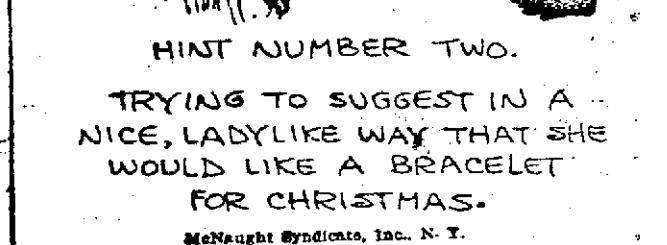 HINT NUMBER TWO.
TRYING TO SUGGEST IN A
NICE, LADYLIKE WAY THAT SHE
WOULD LIKE A BRACELET
FOR CHRISTMAS.
McNaught Syndicate, Inc., N. Y.